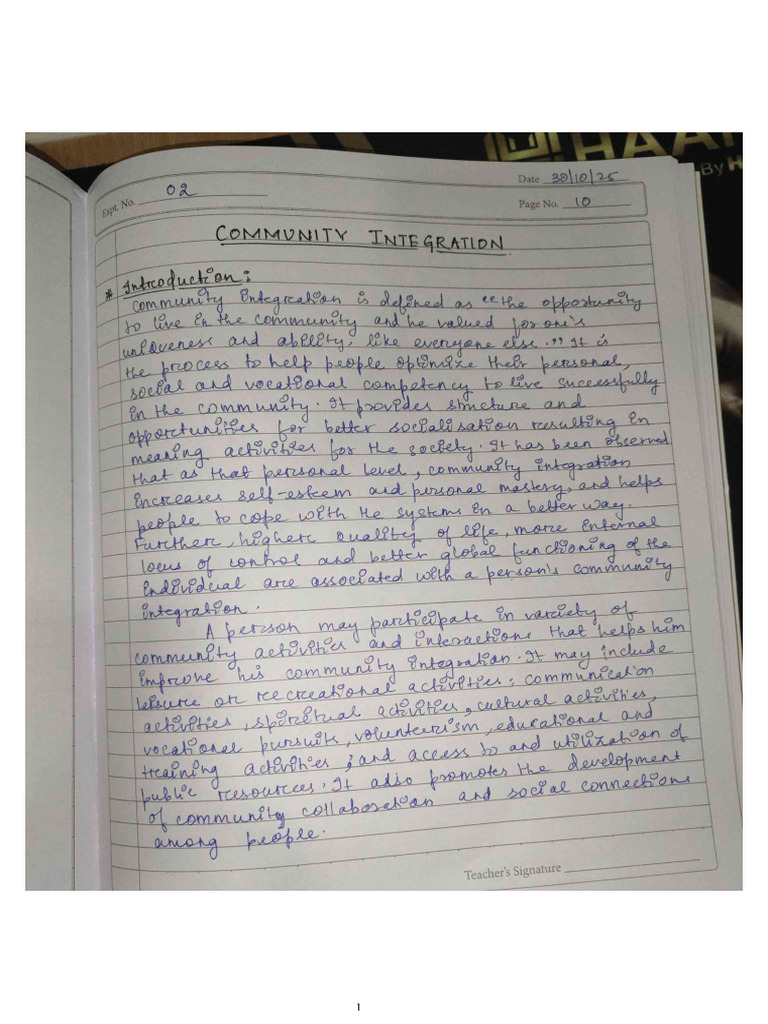 HAA
By H
Expt. No. 02
Date 30/10/25
Page No. 10
COMMUNITY INTEGRATION
* Introduction:
Community integration is defined as "the opportunity
to live in the community and be valued for one's
uniqueness and ability, like everyone else." It is
the process to help people optimize their personal,
social and vocational competency to live successfully
in the community. It provides structure and
opportunities for better socialisation resulting in
meaning activities for the society. It has been observed
that as that personal level, community integration
increases self-esteem and personal mastery, and helps
people to cope with the systems in a better way.
Further, higher quality of life, more internal
locus of control and better global functioning of the
individual are associated with a person's community
integration.
A person may participate in variety of
community activities and interactions that helps him
improve his community integration. It may include
leisure or recreational activities; communication
activities, spiritual activities, cultural activities,
vocational pursuits, volunteerism, educational and
training activities; and access to and utilization of
public resources. It also promotes the development
of community collaboration and social connections
among people.
Teacher's Signature
1